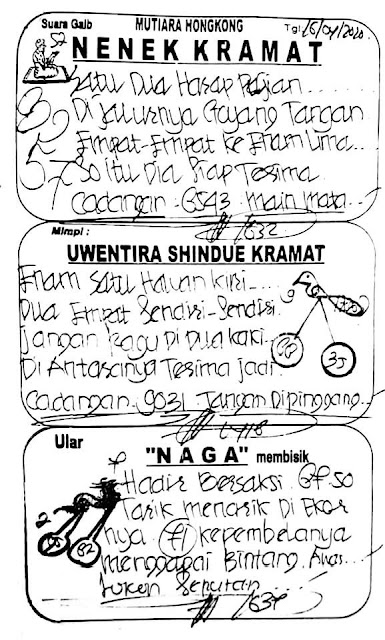 Suara Gaib MUTIARA HONGKONG Tgl
NENEK KRAMAT
Satu Dua Harap
Di jalurnya Goyang Tangan
Empat-Empat ke Enam Lima
50 itu Dia Siap Tesima
Cadangan 6543 main mata
1632
Mimpi :
UWENTIRA SHINDUE KRAMAT
Enam Satu Haluan kiri
Dua Empat Sendiri-Sendiri
jangan Ragu Di Dua kaki
35
Di Antaranya Tesima jadi
Cadangan 9031 Tangan Dipinggang
Ular
"NAGA" membisik
Hadir Bersaksi 50
Tarik menarik Di Ekor
nya 71 kepembelanya
82
menggapai Bintang Awas
tukeran